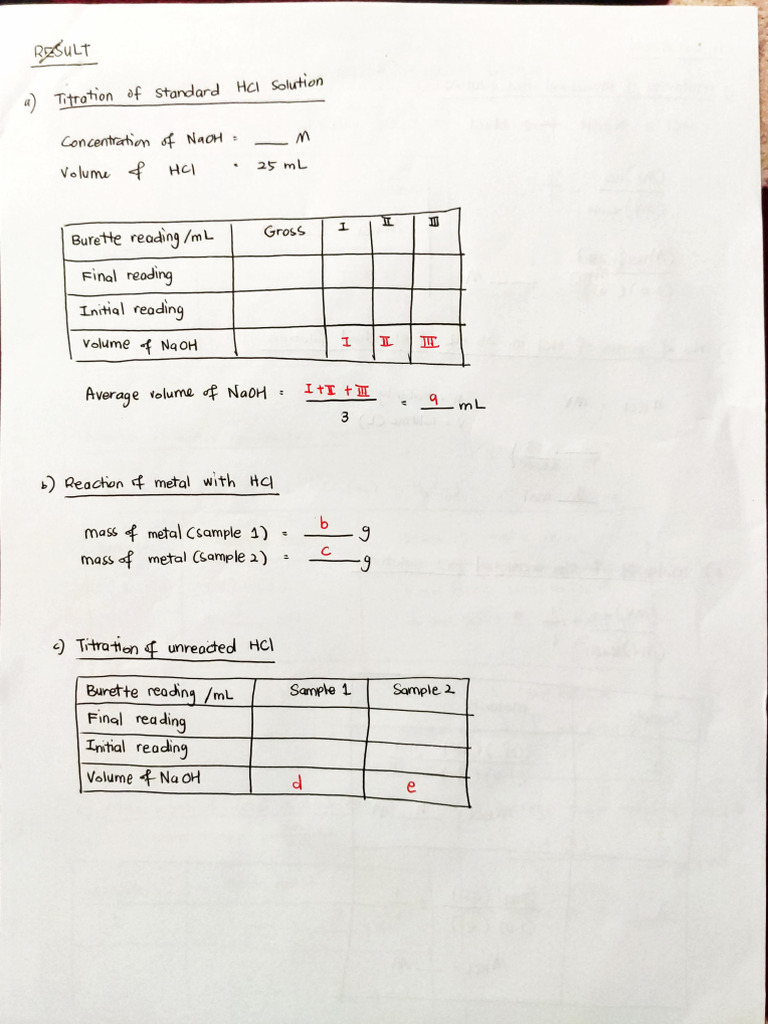 RESULT
a) Titration of standard HCl solution
Concentration of NaOH = ___ M
Volume of HCl = 25 mL
Burette reading /mL Gross I II III
Final reading
Initial reading
Volume of NaOH I II III
Average volume of NaOH = I + II + III / 3 = a mL
b) Reaction of metal with HCl
mass of metal (sample 1) = b g
mass of metal (sample 2) = c g
c) Titration of unreacted HCl
Burette reading /mL Sample 1 Sample 2
Final reading
Initial reading
Volume of NaOH d e